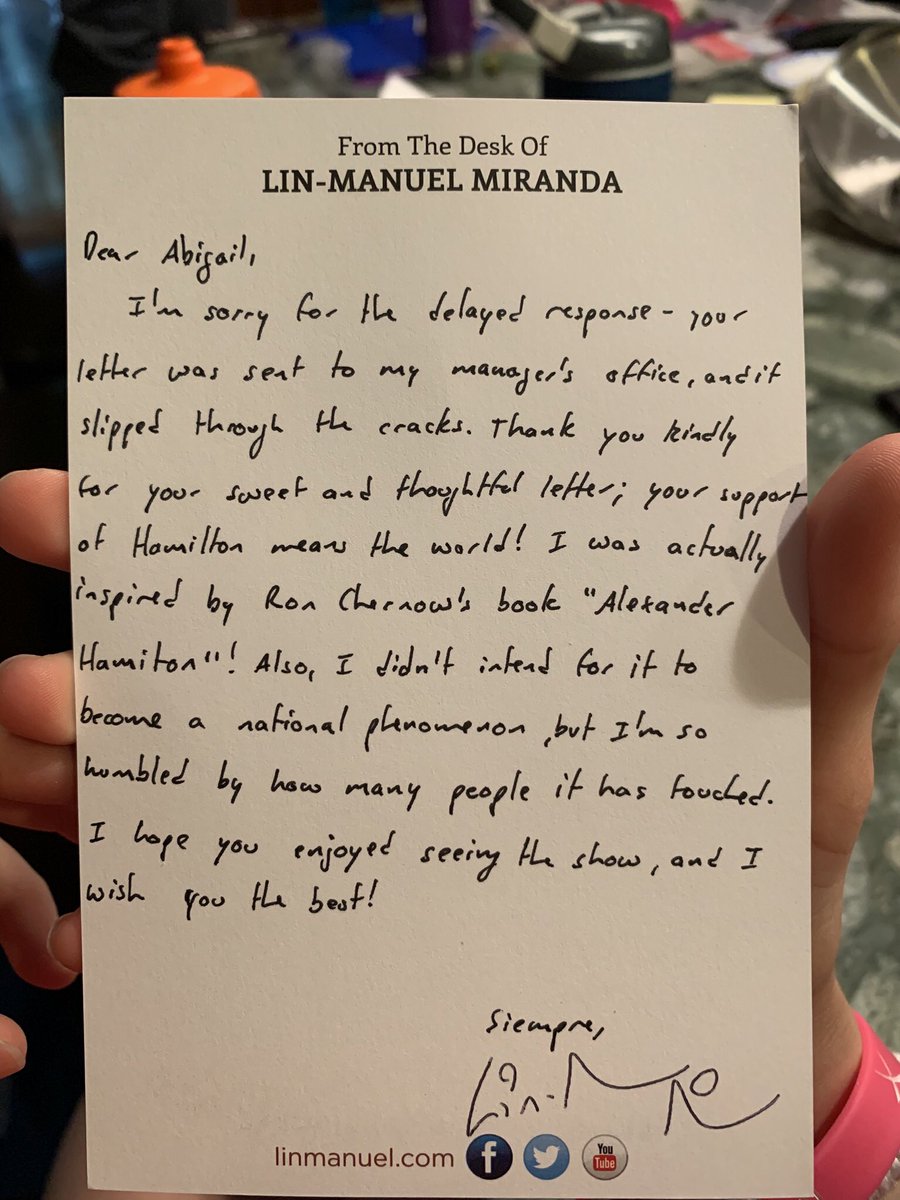 From The Desk Of
LIN-MANUEL MIRANDA
Dear Abigail,
I'm sorry for the delayed response - your
letter was sent to my manager's office, and it
slipped through the cracks. Thank you kindly
for your sweet and thoughtful letter; your support
of Hamilton means the world! I was actually
inspired by Ron Chernow's book "Alexander
Hamiton"! Also, I didn't intend for it to
become a national phenomenon, but I'm so
humbled by how many people it has touched.
I hope you enjoyed seeing the show, and I
wish you the best!
Siempre,
Lin-M
linmanuel.com f You Tube